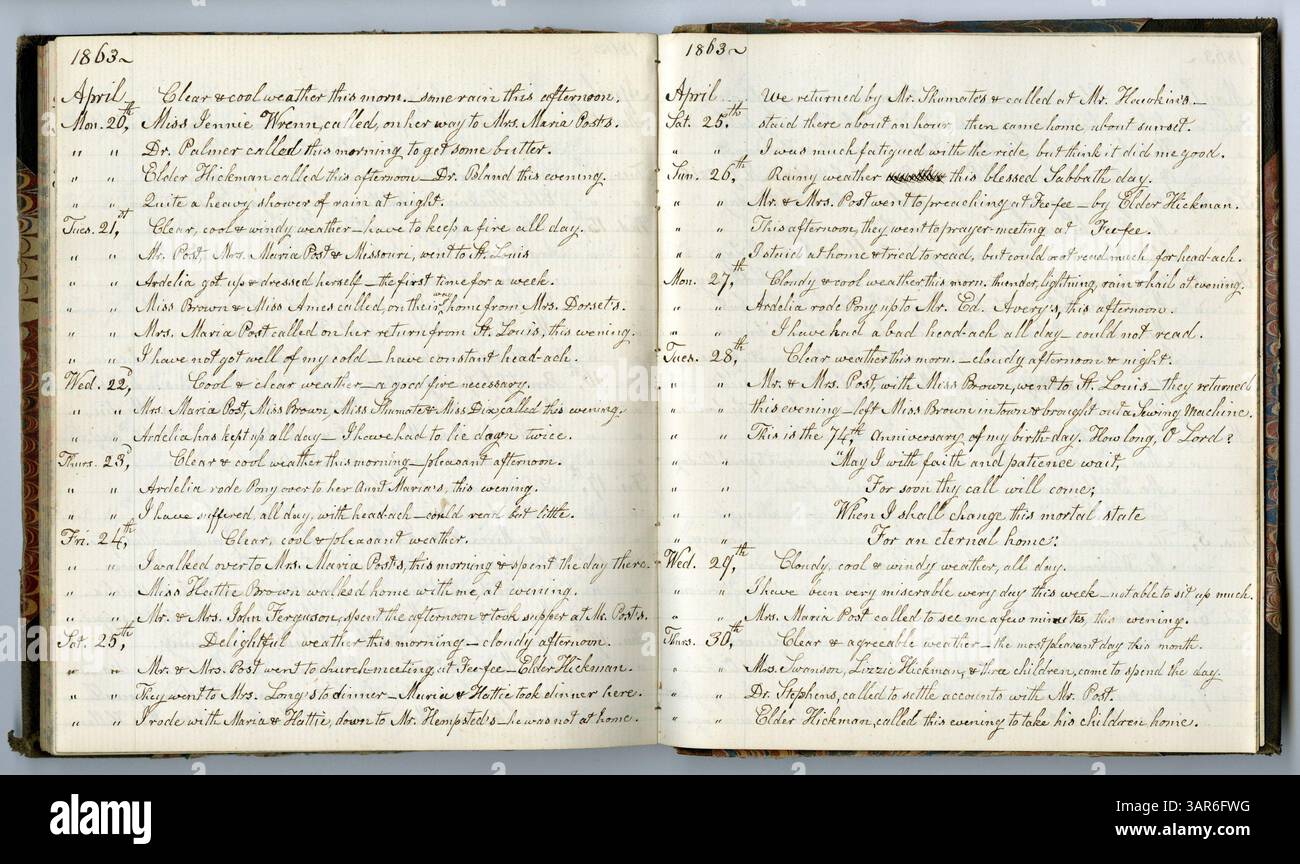 1863
April Clear & cool weather this morn. – some rain this afternoon.
Mon. 20th, Miss Jennie Wrenn, called, on her way to Mrs. Maria Posts.
" " Dr. Palmer called this morning to get some butter.
" " Elder Hickman called this afternoon – Dr. Bland this evening.
" " Quite a heavy shower of rain at night.
Tues. 21st, Clear, cool & windy weather – have to keep a fire all day.
" " Mr. Post, Mrs. Maria Post & Missouri, went to St. Louis
" " Ardelia got up & dressed herself – the first time for a week.
" " Miss Brown & Miss Ames called, on their way home from Mrs. Dorsets.
" " Mrs. Maria Post called on her return from St. Louis, this evening.
" " I have not got well of my cold – have constant head-ach.
Wed. 22d, Cool & clear weather – a good fire necessary.
" " Mrs. Maria Post, Miss Brown, Miss Shumate & Miss Dix, called this evening.
" " Ardelia has kept up all day – I have had to lie down twice.
Thurs. 23d, Clear & cool weather this morning – pleasant afternoon.
" " Ardelia rode Pony over to her Aunt Maria's, this evening.
" " I have suffered, all day, with head-ach – could read but little.
Fri. 24th, Clear, cool & pleasant weather.
" " I walked over to Mrs. Maria Posts, this morning & spent the day there.
" " Miss Hattie Brown walked home with me, at evening.
" " Mr. & Mrs. John Ferguson, spent the afternoon & took supper at Mr. Posts.
Sat. 25th, Delightful weather this morning – cloudy afternoon.
" " Mr. & Mrs. Post went to church meeting, at Fee-fee – Elder Hickman.
" " They went to Mrs. Long's to dinner – Maria & Hattie took dinner here.
" " I rode with Maria & Hattie, down to Mr. Hempsted's – he was not at home.
1863
April We returned by Mr. Shumates & called at Mr. Hawkin's –
Sat. 25th staid there about an hour, then came home about sunset.
" " I was much fatigued with the ride, but think it did me good.
Sun. 26th, Rainy weather this blessed Sabbath day.
" " Mr. & Mrs. Post went to preaching at Fee-fee – by Elder Hickman.
" " This afternoon, they went to prayer-meeting at Fee-fee.
" " I staid at home & tried to read, but could not read much, for head-ach.
Mon. 27th, Cloudy & cool weather this morn. thunder, lightning, rain & hail at evening.
" " Ardelia rode Pony up to Mr. Ed. Avery's, this afternoon.
" " I have had a bad head-ach all day – could not read.
Tues. 28th, Clear weather this morn. – cloudy afternoon & night.
" " Mr. & Mrs. Post, with Miss Brown, went to St. Louis – they returned
" " this evening – left Miss Brown in town & brought out a Sewing Machine.
" " This is the 74th, Anniversary of my birth-day. How long, O Lord?
" " "May I with faith and patience wait,
" " For soon thy call will come;
" " When I shall change this mortal state
" " For an eternal home".
Wed. 29th, Cloudy, cool & windy weather, all day.
" " I have been very miserable every day this week – not able to sit up much.
" " Mrs. Maria Post called to see me a few minutes, this evening.
Thurs. 30th, Clear & agreeable weather – the most pleasant day this month.
" " Mrs. Swanson, Lizzie Hickman, & three children, came to spend the day.
" " Dr. Stephens, called to settle accounts with Mr. Post.
" " Elder Hickman, called this evening to take his children home.
alamy
Image ID: 3AR6FWG
www.alamy.com